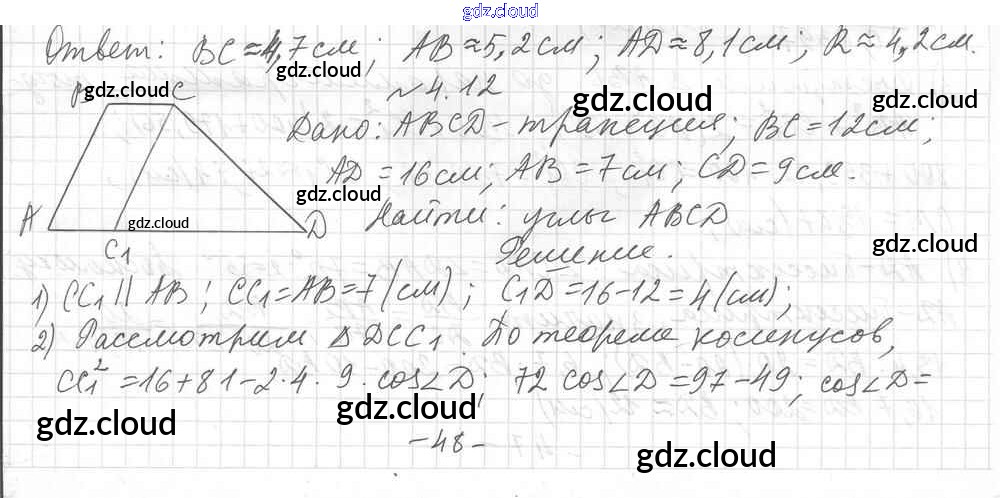 gdz.cloud
Ответ: BC ≈ 4,7 см; AB ≈ 5,2 см; AD ≈ 8,1 см; R ≈ 4,2 см.
gdz.cloud
~ 4.12
B gdz.cloud C gdz.cloud gdz.cloud
Дано: ABCD - трапеция; BC = 12 см;
AD = 16 см; AB = 7 см; CD = 9 см.
gdz.cloud
A gdz.cloud D Найти: углы ABCD
C1 Решение. gdz.cloud
1) CC1 || AB; CC1 = AB = 7 (см); C1D = 16 - 12 = 4 (см);
2) Рассмотрим Δ DCC1. По теореме косинусов,
CC1² = 16 + 81 - 2·4·9·cos∠D; 72 cos∠D = 97 - 49; cos∠D =
gdz.cloud gdz.cloud
- 48 -
gdz.cloud